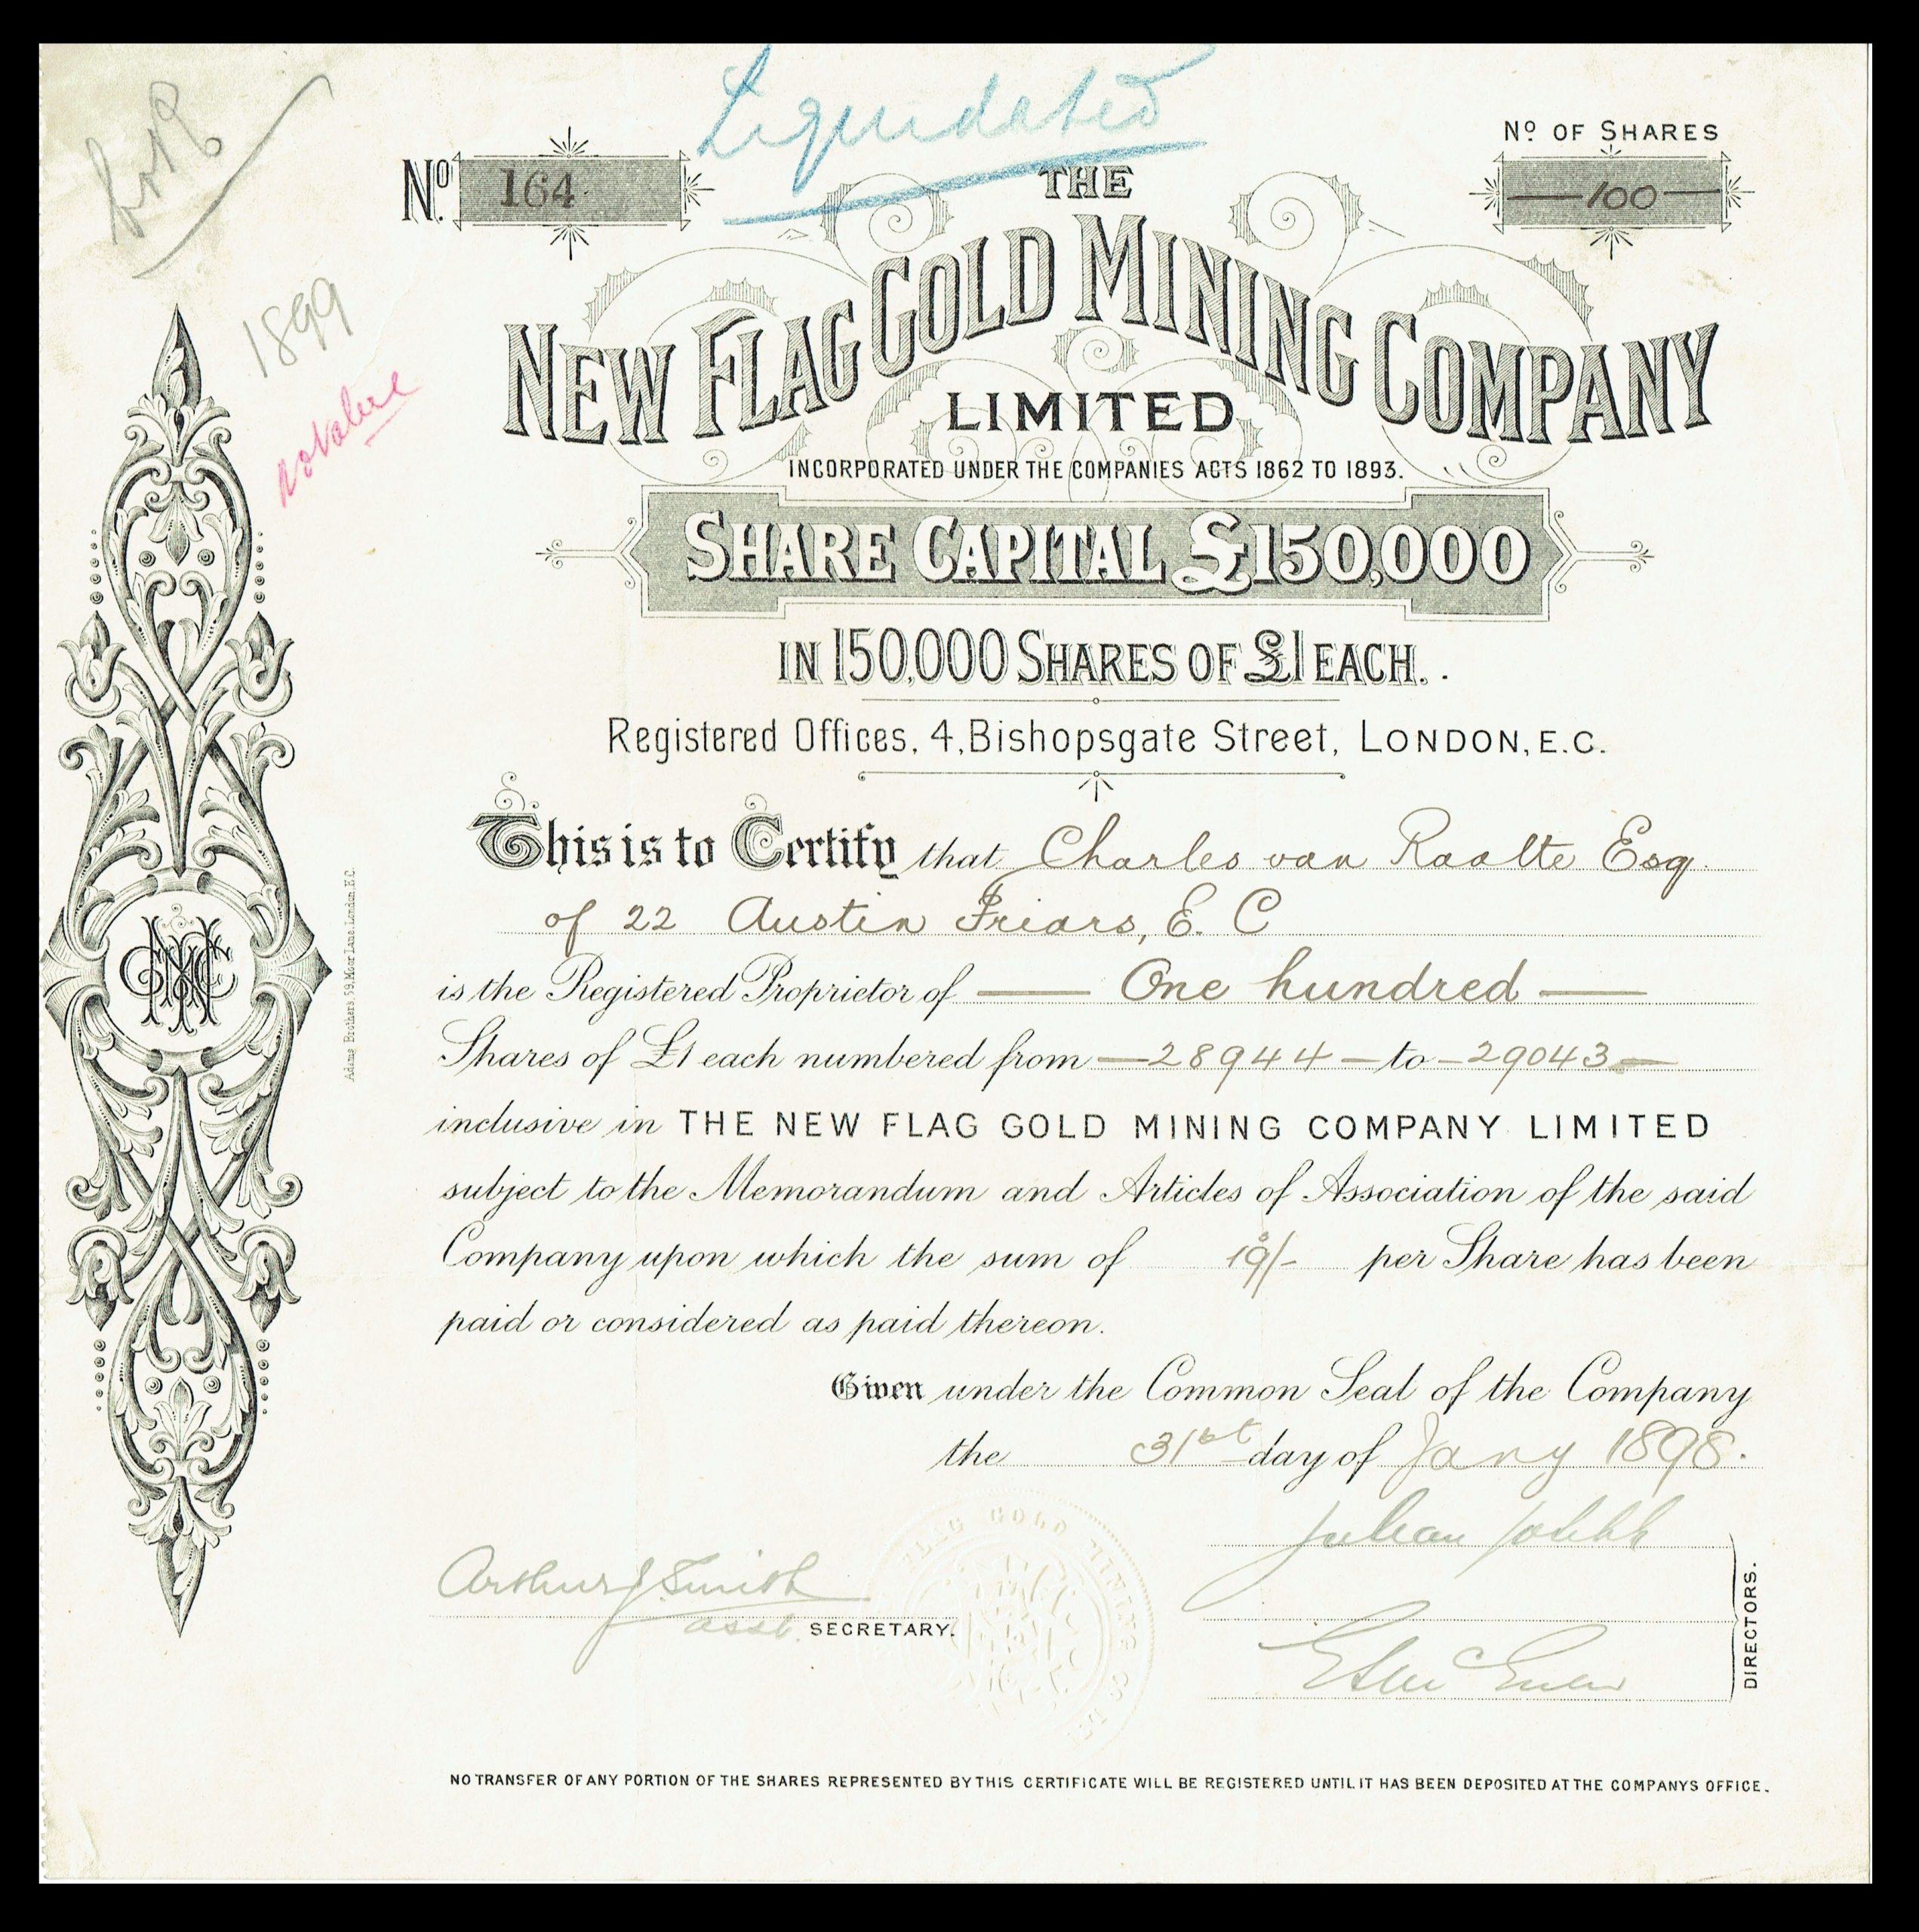 Liquidated
No. OF SHARES
No. 164
— 100 —
1899
no value
THE
NEW FLAG GOLD MINING COMPANY
LIMITED
INCORPORATED UNDER THE COMPANIES ACTS 1862 TO 1893.
SHARE CAPITAL £150,000
IN 150,000 SHARES OF £1 EACH.
Registered Offices, 4, Bishopsgate Street, LONDON, E.C.
This is to Certify that Charles van Raalte Esq.
of 22 Austin Friars, E. C
is the Registered Proprietor of — One hundred —
Shares of £1 each numbered from — 28944 — to — 29043 —
inclusive in THE NEW FLAG GOLD MINING COMPANY LIMITED
subject to the Memorandum and Articles of Association of the said
Company upon which the sum of 19/- per Share has been
paid or considered as paid thereon.
Given under the Common Seal of the Company
the 31st day of Jany 1898.
Arthur J. Smith
asst. SECRETARY.
DIRECTORS.
FLAG GOLD MINING CO LTD
NO TRANSFER OF ANY PORTION OF THE SHARES REPRESENTED BY THIS CERTIFICATE WILL BE REGISTERED UNTIL IT HAS BEEN DEPOSITED AT THE COMPANYS OFFICE.
Adams Brothers, 59, Moor Lane, London. E.C.